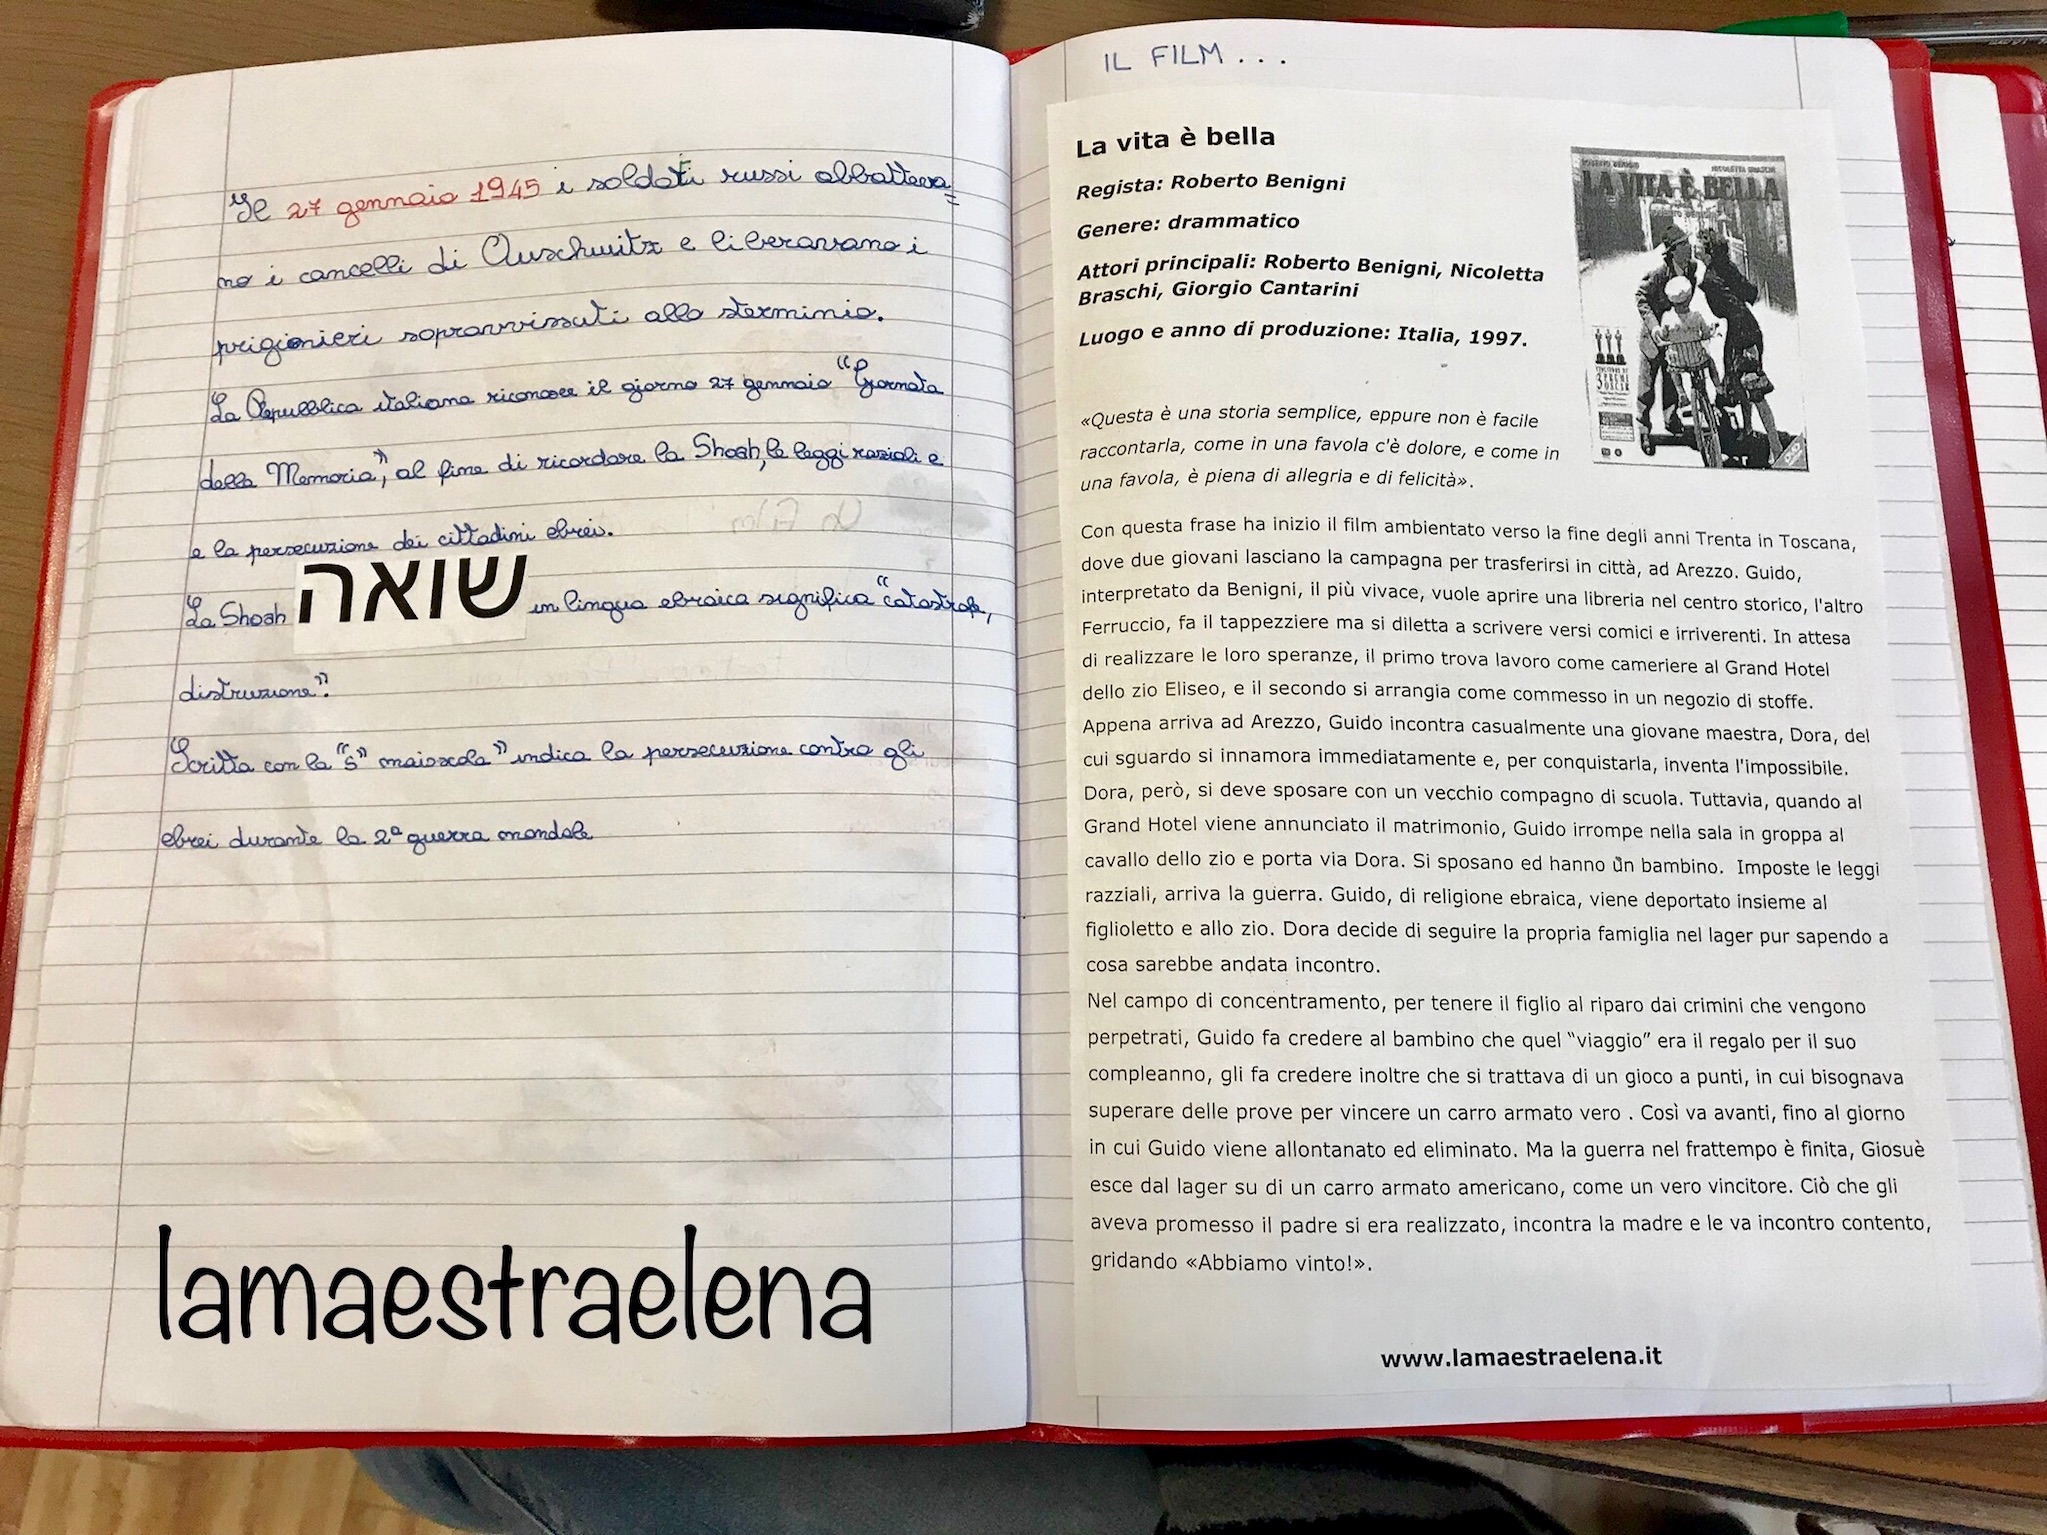 Il 27 gennaio 1945 i soldati russi abbatteva=
no i cancelli di Auschwitz e liberavano i
prigionieri sopravvissuti allo sterminio.
La Repubblica italiana riconosce il giorno 27 gennaio "Giornata
della Memoria", al fine di ricordare la Shoah, le leggi razziali e
e la persecuzione dei cittadini ebrei.
La Shoah שואה in lingua ebraica significa "catastrofe,
distruzione".
Scritta con la "S" maiuscola" indica la persecuzione contro gli
ebrei durante la 2ª guerra mondiale
lamaestraelena
IL FILM...
La vita è bella
Regista: Roberto Benigni
Genere: drammatico
Attori principali: Roberto Benigni, Nicoletta
Braschi, Giorgio Cantarini
Luogo e anno di produzione: Italia, 1997.
ROBERTO BENIGNI NICOLETTA BRASCHI
LA VITA È BELLA
3 PREMI
OSCAR
«Questa è una storia semplice, eppure non è facile
raccontarla, come in una favola c'è dolore, e come in
una favola, è piena di allegria e di felicità».
Con questa frase ha inizio il film ambientato verso la fine degli anni Trenta in Toscana,
dove due giovani lasciano la campagna per trasferirsi in città, ad Arezzo. Guido,
interpretato da Benigni, il più vivace, vuole aprire una libreria nel centro storico, l'altro
Ferruccio, fa il tappezziere ma si diletta a scrivere versi comici e irriverenti. In attesa
di realizzare le loro speranze, il primo trova lavoro come cameriere al Grand Hotel
dello zio Eliseo, e il secondo si arrangia come commesso in un negozio di stoffe.
Appena arriva ad Arezzo, Guido incontra casualmente una giovane maestra, Dora, del
cui sguardo si innamora immediatamente e, per conquistarla, inventa l'impossibile.
Dora, però, si deve sposare con un vecchio compagno di scuola. Tuttavia, quando al
Grand Hotel viene annunciato il matrimonio, Guido irrompe nella sala in groppa al
cavallo dello zio e porta via Dora. Si sposano ed hanno un bambino. Imposte le leggi
razziali, arriva la guerra. Guido, di religione ebraica, viene deportato insieme al
figlioletto e allo zio. Dora decide di seguire la propria famiglia nel lager pur sapendo a
cosa sarebbe andata incontro.
Nel campo di concentramento, per tenere il figlio al riparo dai crimini che vengono
perpetrati, Guido fa credere al bambino che quel "viaggio" era il regalo per il suo
compleanno, gli fa credere inoltre che si trattava di un gioco a punti, in cui bisognava
superare delle prove per vincere un carro armato vero . Così va avanti, fino al giorno
in cui Guido viene allontanato ed eliminato. Ma la guerra nel frattempo è finita, Giosuè
esce dal lager su di un carro armato americano, come un vero vincitore. Ciò che gli
aveva promesso il padre si era realizzato, incontra la madre e le va incontro contento,
gridando «Abbiamo vinto!».
www.lamaestraelena.it